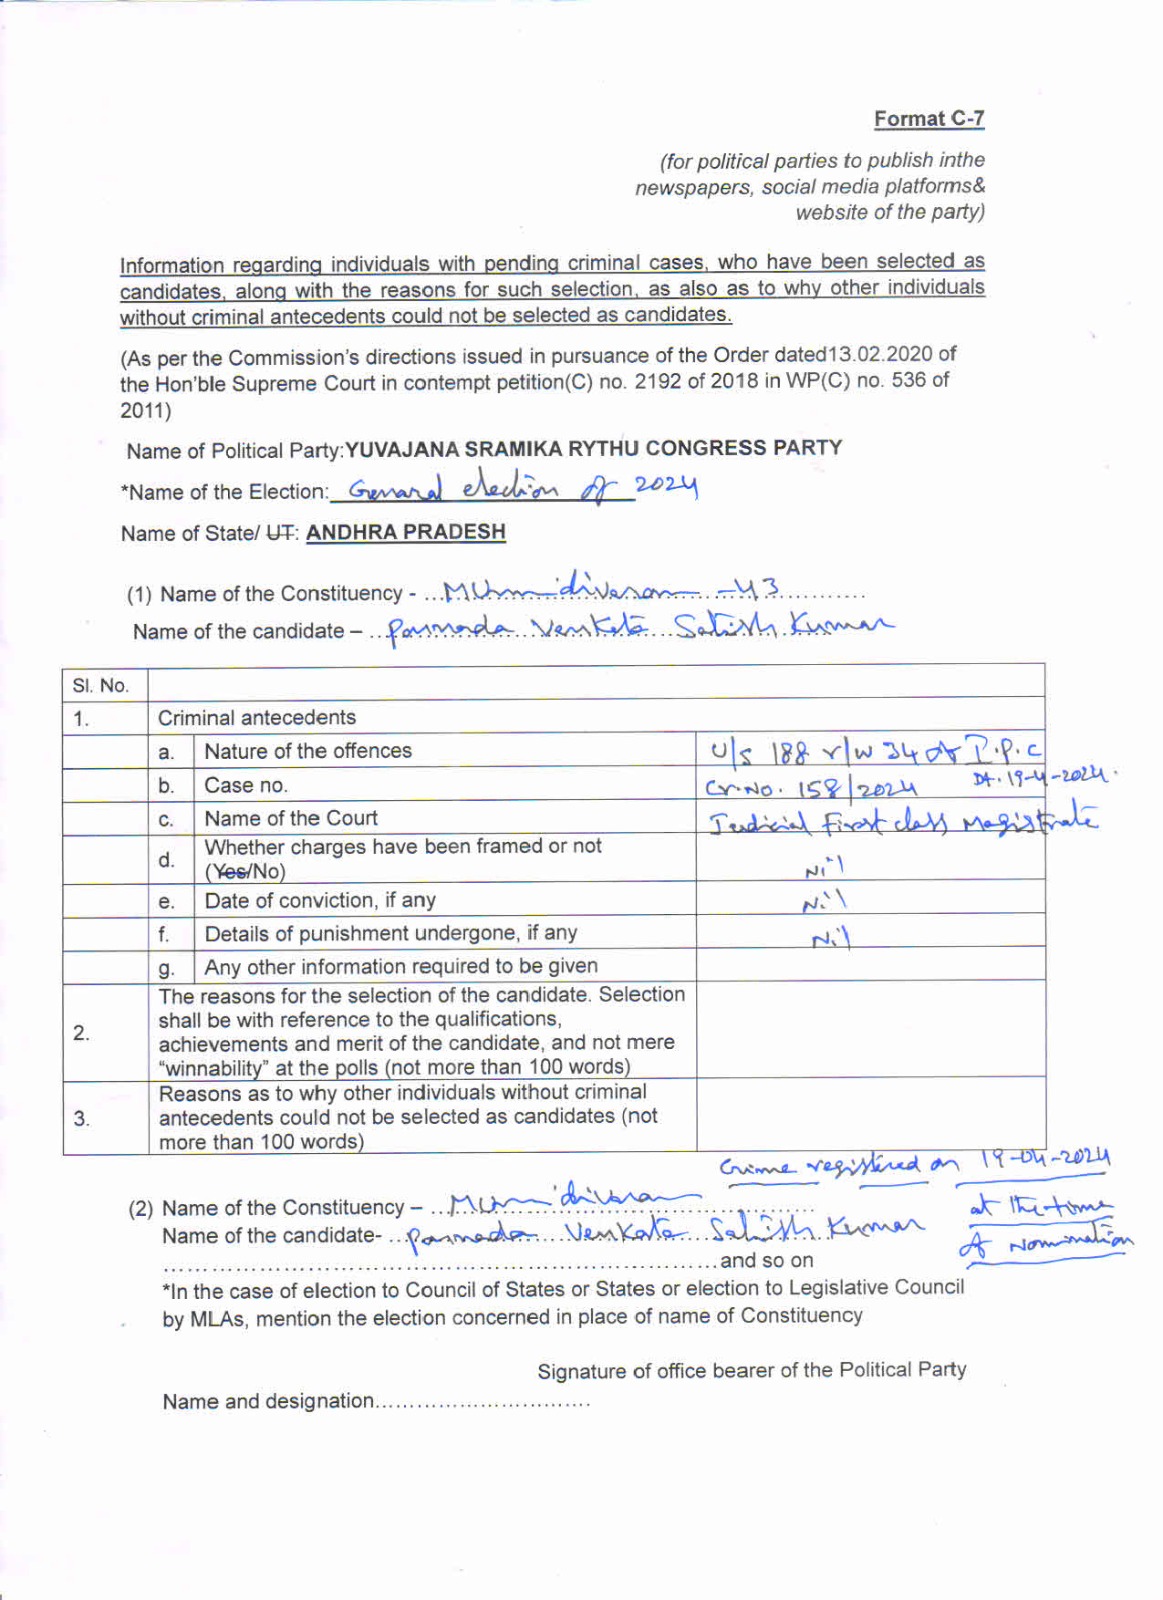 Format C-7
(for political parties to publish inthe
newspapers, social media platforms&
website of the party)
Information regarding individuals with pending criminal cases, who have been selected as
candidates, along with the reasons for such selection, as also as to why other individuals
without criminal antecedents could not be selected as candidates.
(As per the Commission's directions issued in pursuance of the Order dated13.02.2020 of
the Hon'ble Supreme Court in contempt petition(C) no. 2192 of 2018 in WP(C) no. 536 of
2011)
Name of Political Party:YUVAJANA SRAMIKA RYTHU CONGRESS PARTY
*Name of the Election: General election of 2024
Name of State/ UT: ANDHRA PRADESH
(1) Name of the Constituency - ...Mummidivaram - 43............
Name of the candidate – ..Ponnada Venkata Satish Kumar
Sl. No.
1. Criminal antecedents
a. Nature of the offences U/s 188 r/w 34 of I.P.C
b. Case no. Cr.No. 158/2024 Dt. 19-4-2024.
c. Name of the Court Judicial First class Magistrate
d. Whether charges have been framed or not
(Yes/No) Nil
e. Date of conviction, if any Nil
f. Details of punishment undergone, if any Nil
g. Any other information required to be given
2. The reasons for the selection of the candidate. Selection
shall be with reference to the qualifications,
achievements and merit of the candidate, and not mere
"winnability" at the polls (not more than 100 words)
3. Reasons as to why other individuals without criminal
antecedents could not be selected as candidates (not
more than 100 words)
Crime registered on 19-04-2024
at the time
of Nomination
(2) Name of the Constituency – ..Mummidivaram............
Name of the candidate- ..Ponnada Venkata Satish Kumar
......................................................................and so on
*In the case of election to Council of States or States or election to Legislative Council
by MLAs, mention the election concerned in place of name of Constituency
Signature of office bearer of the Political Party
Name and designation..............................